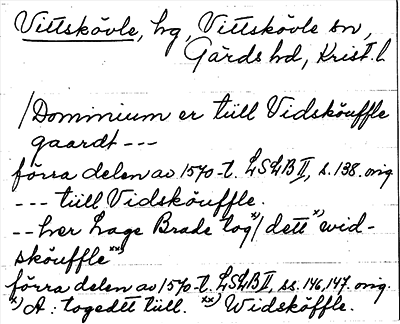 Vittskövle, hg, Vittskövle sn,
Gärds hd, Krist. l.
/Dominium er tüll Vidsköuffle
gaardt ---
förra delen av 1570-t. LSLB II, s. 138. orig
--- tüll Vidsköuffle.
-- her Lage Brade tog x)/ dett x) wid-
sköuffle xx)
förra delen av 1570-t. LSLB II, ss. 146, 147. orig.
x) A: togedtt tüll. xx) Widsköffle.